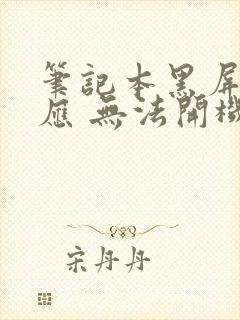 筆記本黑屏
應 無法開機
宋丹丹